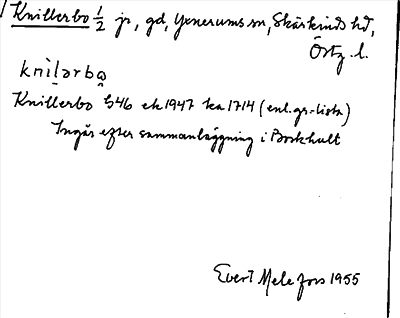 Knillerbo ½ jr, gd, Yxnerums sn, Skärkinds hd,
Östg. l.
knìlərbω
Knillerbo G46 ek 1947 ka 1714 (enl. gr.-lista)
Ingår efter sammanläggning i Borkhult
Evert Melefors 1955